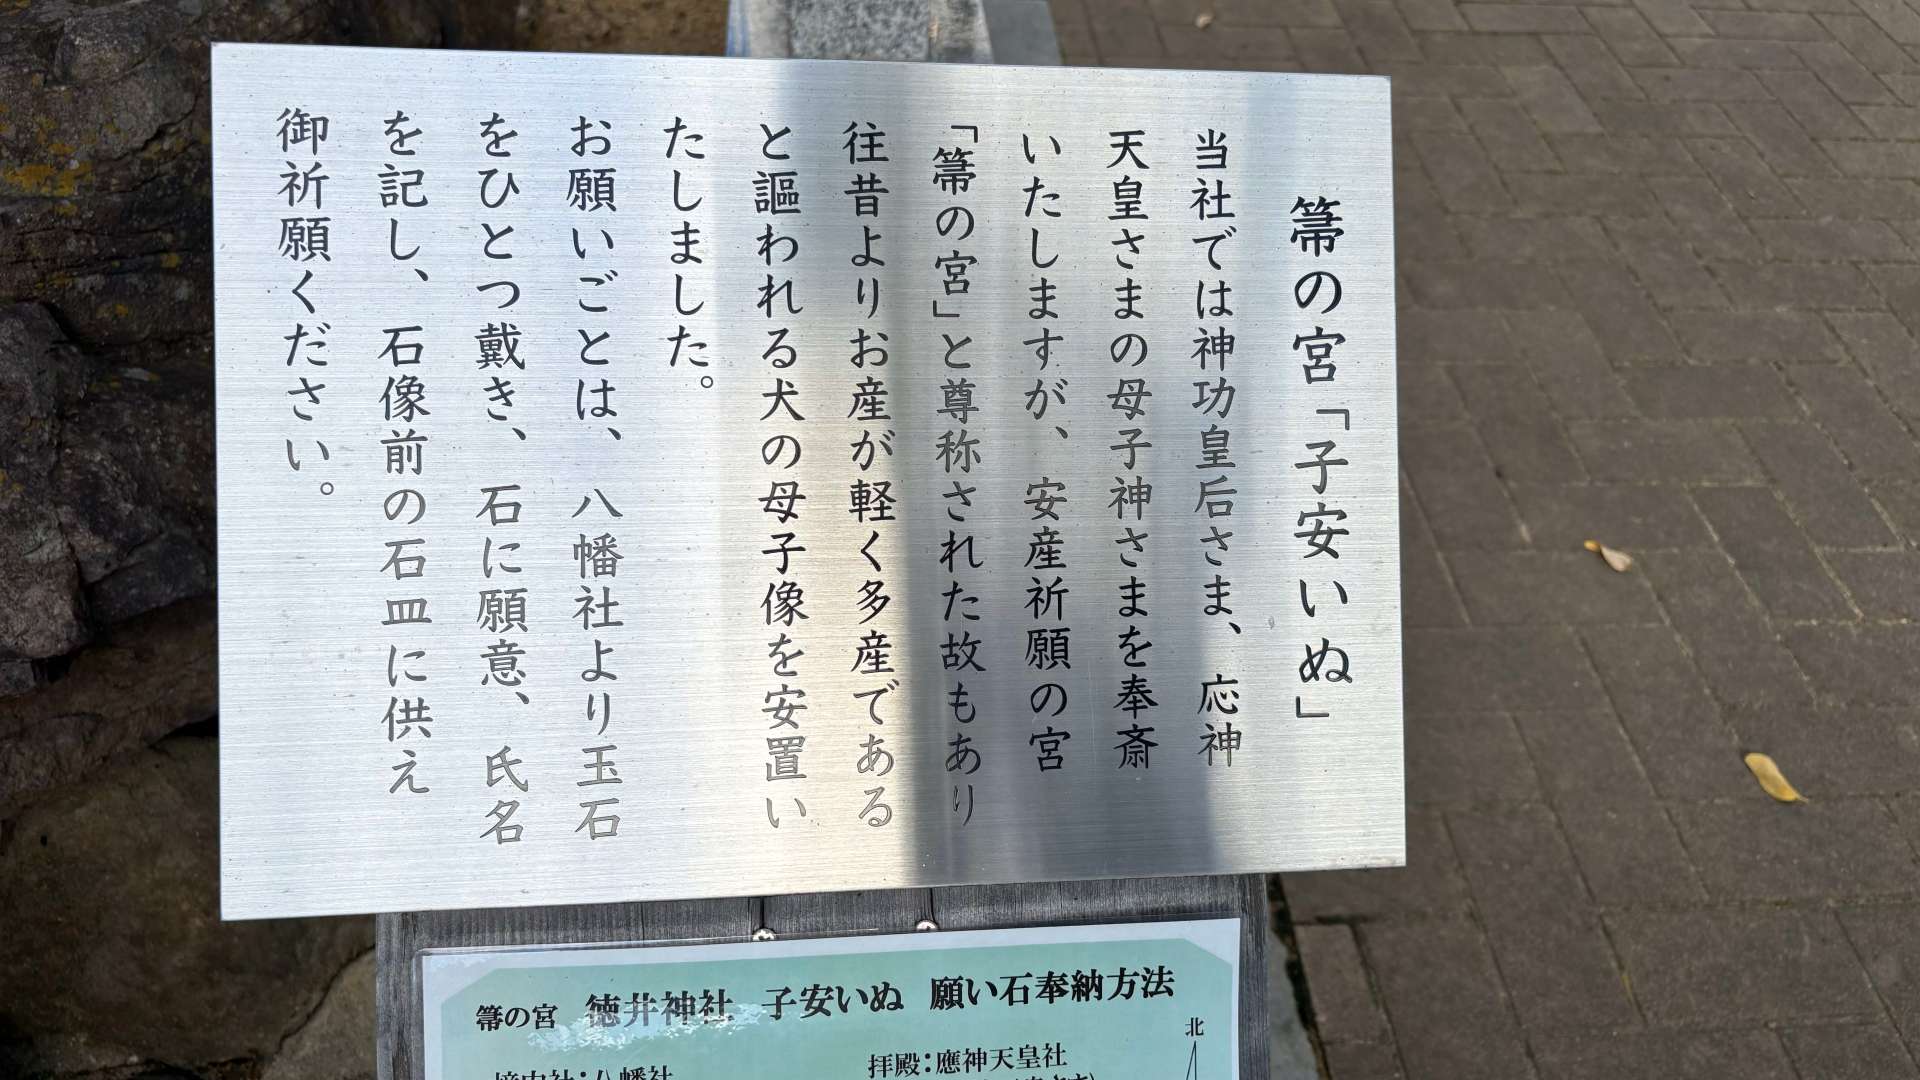 箒の宮「子安いぬ」
当社では神功皇后さま、応神
天皇さまの母子神さまを奉斎
いたしますが、安産祈願の宮
「箒の宮」と尊称された故もあり
往昔よりお産が軽く多産である
と謳われる犬の母子像を安置い
たしました。
お願いごとは、八幡社より玉石
をひとつ戴き、石に願意、氏名
を記し、石像前の石皿に供え
御祈願ください。
箒の宮 徳井神社 子安いぬ 願い石奉納方法
北
拝殿:應神天皇社
境内社:八幡社